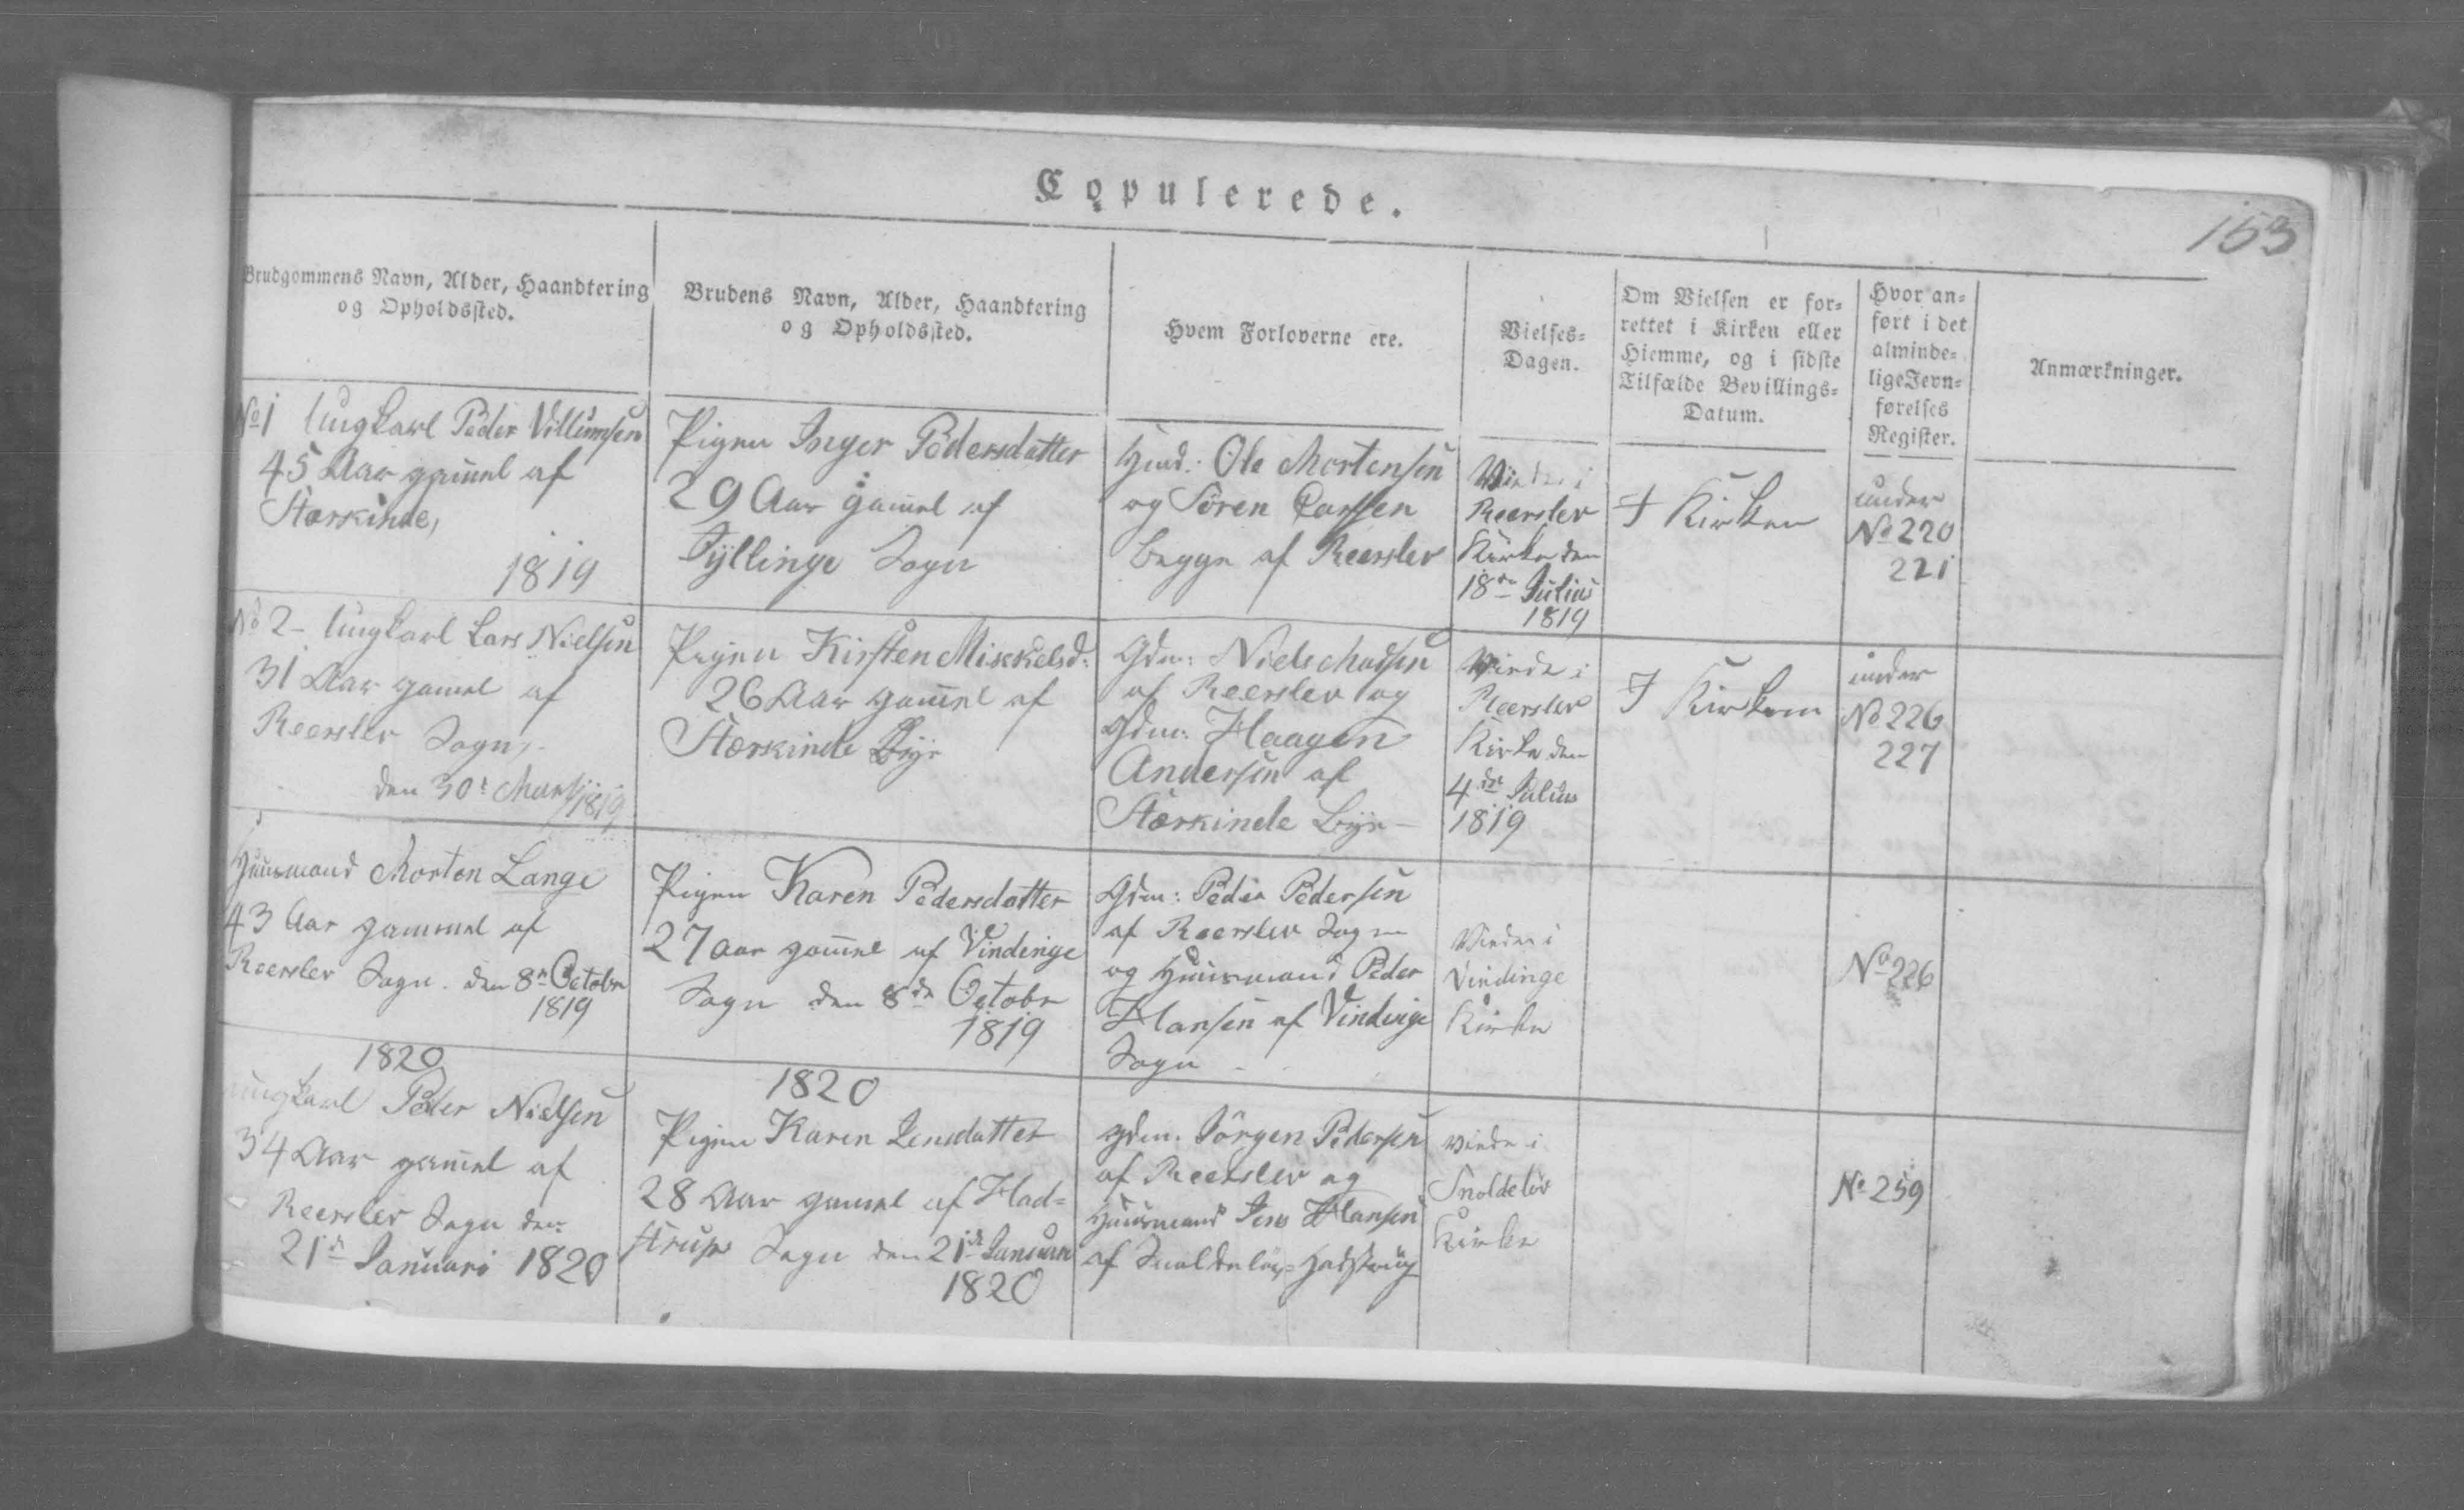 Copulerede.
153
Brudgommens Navn, Alder, Haandtering
og Opholdssted.
Brudens Navn, Alder, Haandtering
og Opholdssted.
Hvem Forloverne ere.
Vielses-
Dagen.
Om Vielsen er for-
rettet i Kirken eller
Hiemme, og i sidste
Tilfælde Bevillings-
Datum.
Hvor an-
ført i det
alminde-
lige Jevn-
førelses
Register.
Anmærkninger.
No 1 Ungkarl Peder Villumsen
45 Aar gam̅el af
Stærkinde,
1819
Pigen Inger Pedersdatter
29 Aar gam̅el af
Syllinge Sogn
Ole Mortensen
og Sören Carlsen
begge af Reerslev
Viede i
Reerslev
Kirke den
18de Julius
1819
I Kirken
under
No 220
221
No 2 Ungkarl Lars Nielsen
31 Aar gamel af
Reerslev Sogn,
den 30t Marts 1819
Pigen Kirsten Mikkelsd:
26 Aar gam̅el af
Stærkinde Bÿe
Gdm: Niels Madsen
af Reerslev og
Gdm: Haagen
Andersen af
Stærkinde Bÿe
Viede i
Reerslev
Kirke den
4de Julius
1819
I Kirken
under
No 226
227
Huusmand Morten Lange
43 Aar gammel af
Reerslev Sogn. den 8de Octobr
1819
Pigen Karen Pedersdatter
27 aar gam̅el af Vindinge
Sogn den 8de Octobr
1819
Gdm: Peder Pedersen
af Reerslev Sogn
og Huusmand Peder
Hansen af Vindinge
Sogn
Viede i
Vindinge
Kirke
No 226
1820
Ungkarl Peder Nielsen
34 Aar gam̅el af
Reerslev Sogn den
21de Januari 1820
1820
Pigen Karen Jensdatter
28 Aar gamel af Had-
strup Sogn den 21de Januari
1820
Gdm. Jörgen Pedersen
af Reerslev og
Huusmand Jens Hansen
af Snoldeløv Hadstrup
viede i
Snoldeløv
Kirke
No 259